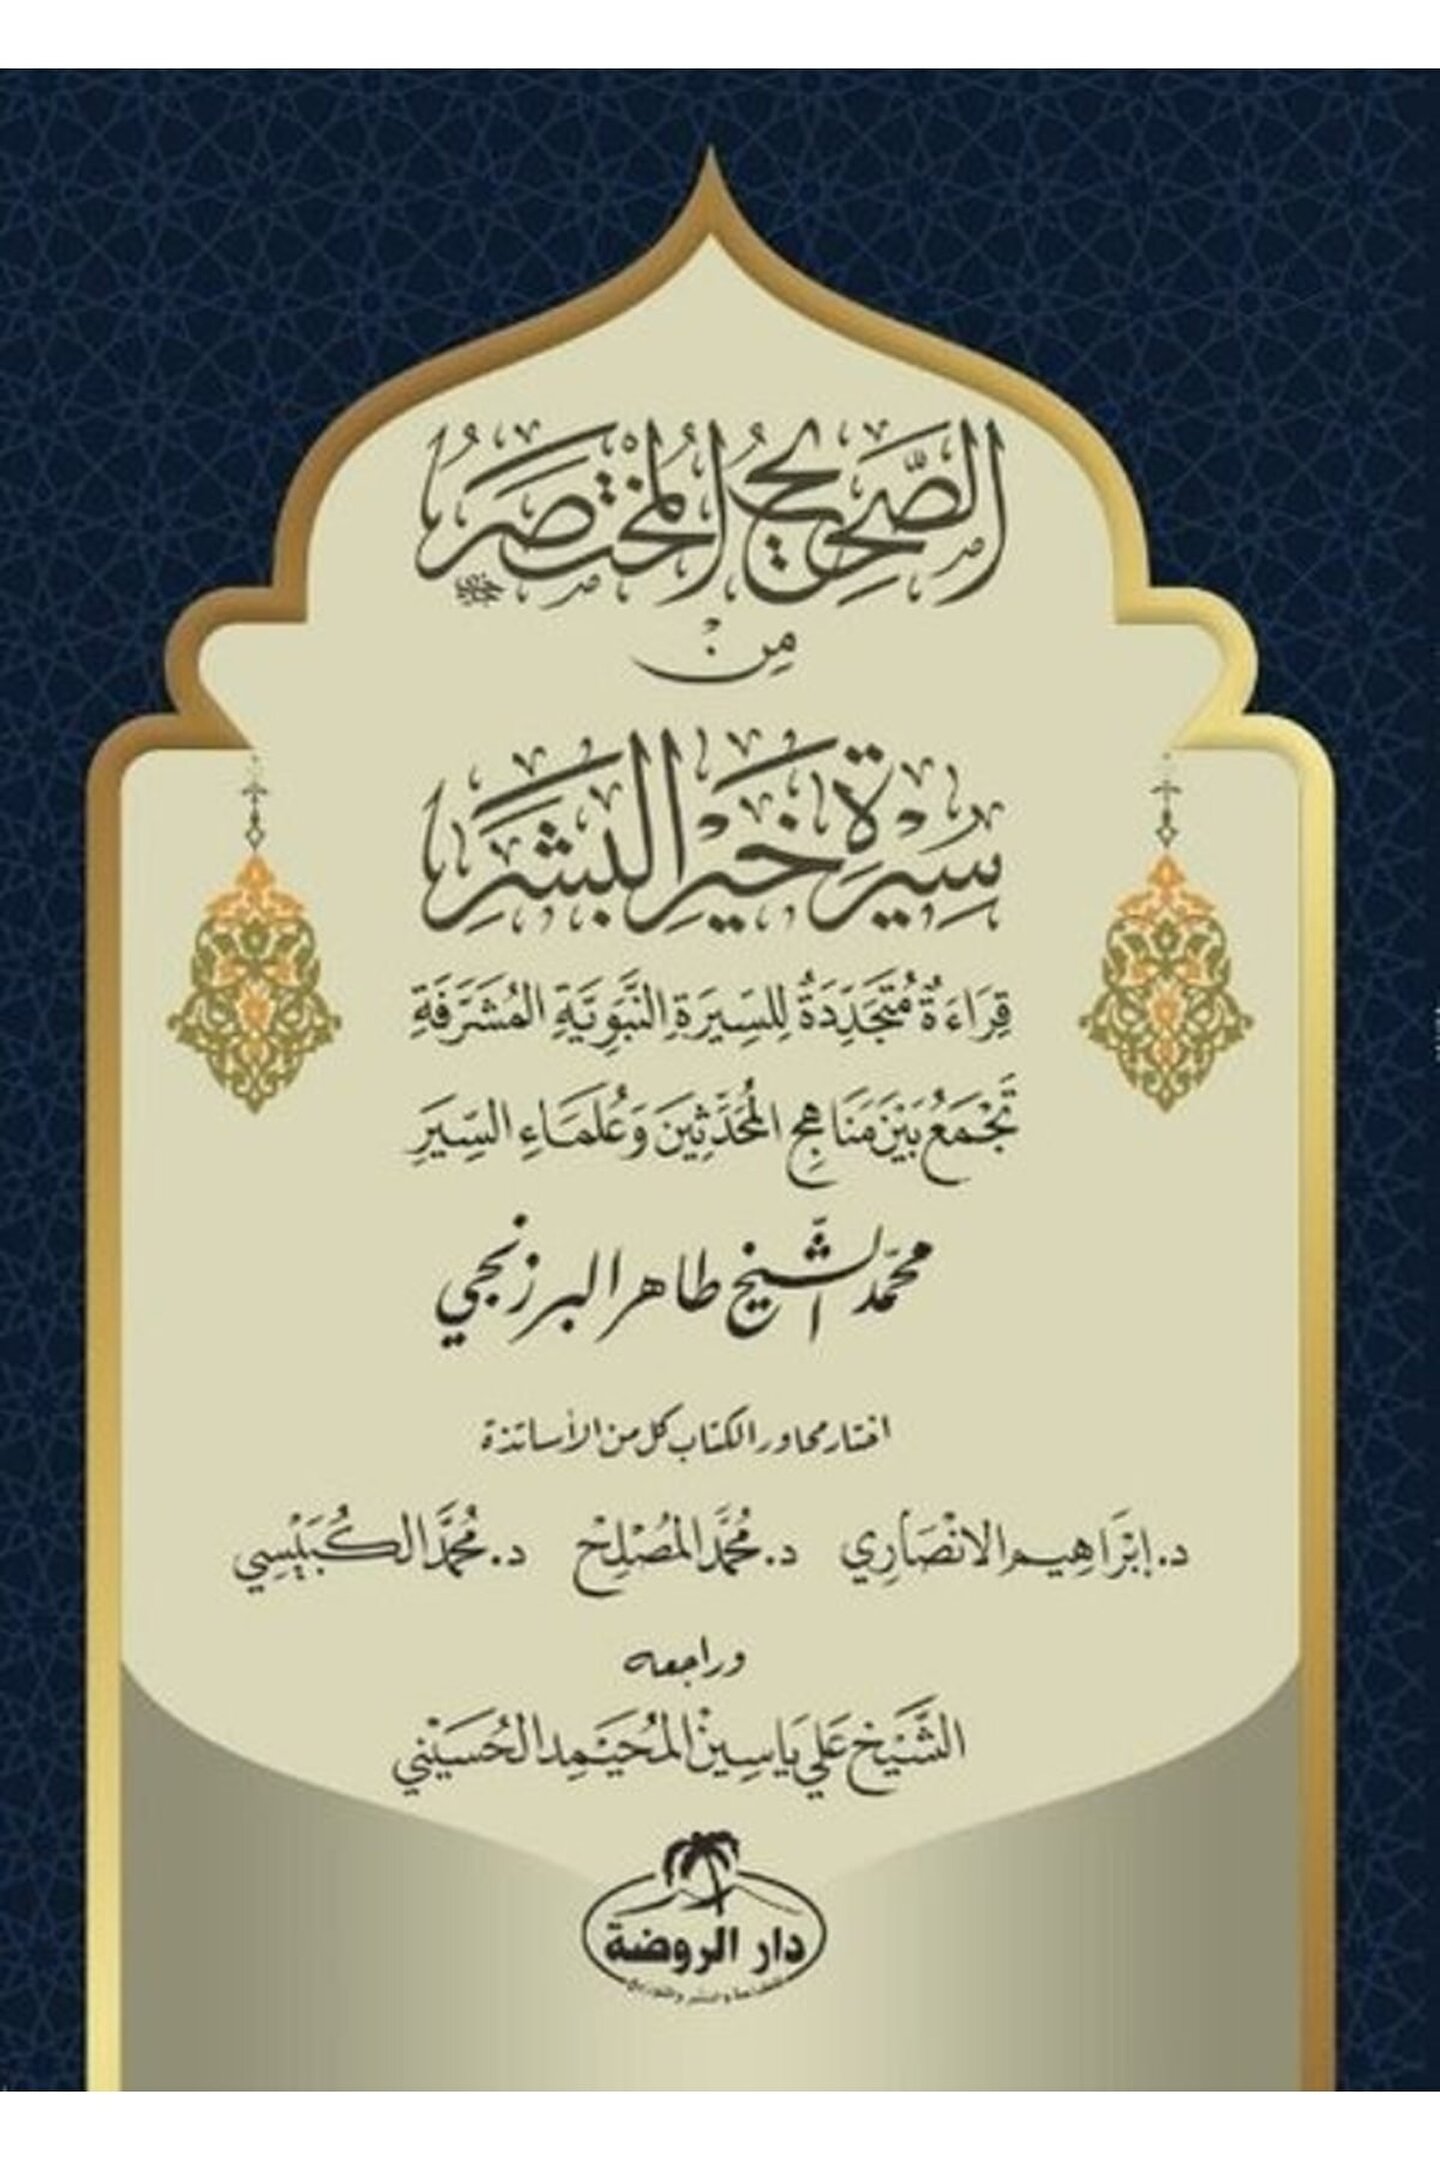 الصَّحِيحُ المُخْتَصَرُ
مِنْ
سِيْرَةِ خَيْرِ البَشَرِ
قِرَاءَةٌ مُتَجَدِّدَةٌ لِلسِّيرَةِ النَّبَوِيَّةِ المُشَرَّفَةِ
تَجْمَعُ بَيْنَ مَنَاهِجِ المُحَدِّثِينَ وَعُلَمَاءِ السِّيَرِ
محمّد الشيخ طاهر البرزنجي
اختار محاور الكتاب كل من الأساتذة
د. إبْرَاهِيم الانْصَارِي د. مُحَمَّد المُصْلِحْ د. مُحَمَّد الكُبَيْسِي
وراجعه
الشَّيْخ عَلي يَاسِينْ المُحَيْمِد الحُسَيْنِي
دار الروضة
للطباعة والنشر والتوزيع